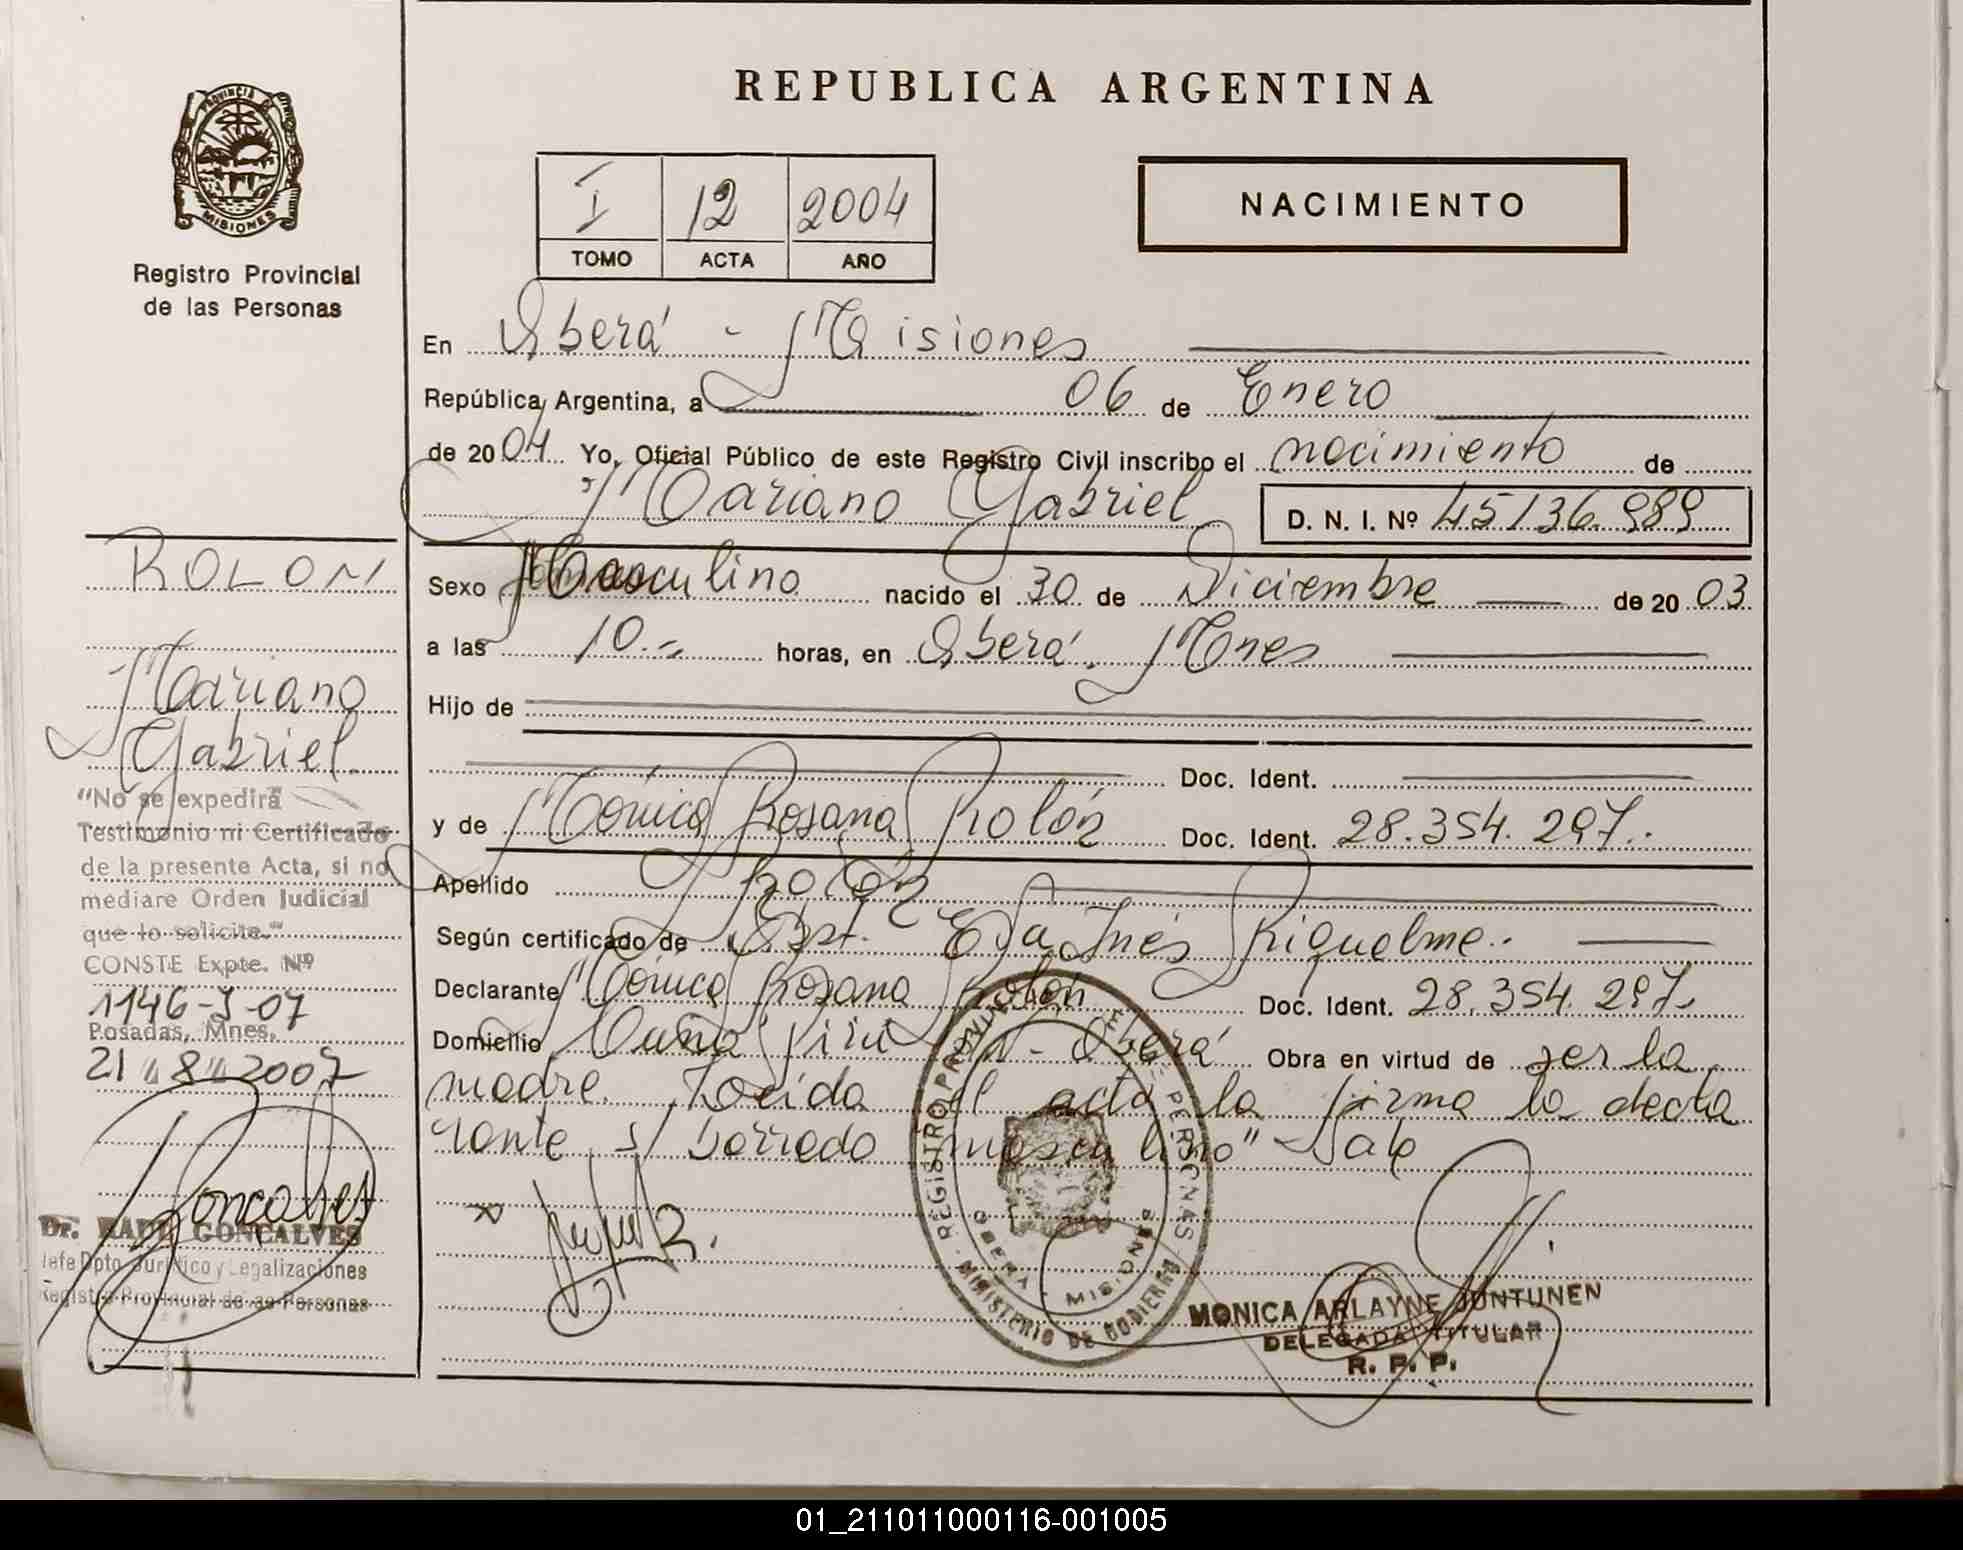 REPUBLICA ARGENTINA
PROVINCIA DE
MISIONES
Registro Provincial
de las Personas
I 12 2004
TOMO ACTA AÑO
NACIMIENTO
En Oberá - Misiones
República Argentina, a 06 de Enero
de 2004 Yo, Oficial Público de este Registro Civil inscribo el nacimiento de
Mariano Gabriel D. N. I. Nº 45136.989
Sexo Masculino nacido el 30 de Diciembre de 2003
a las 10.= horas, en Oberá. Mnes
Hijo de
Doc. Ident.
y de Mónica Rosana Rolón Doc. Ident. 28.354.297.
Apellido Rolón
Según certificado de Obst. Elsa Inés Riquelme.
Declarante Mónica Rosana Rolón Doc. Ident. 28.354.297.
Domicilio Cuña Pirú S/n - Oberá Obra en virtud de ser la
madre. Leída el acta la firma la decla
rante. S/ borrado "masculino" Vale
ROLON
Mariano
Gabriel
"No se expedirá
Testimonio ni Certificado
de la presente Acta, si no
mediare Orden Judicial
que lo solicite."
CONSTE Expte. Nº
1146-J-07
Posadas, Mnes.
21 8 2007
Dr. RAUL GONCALVES
Jefe Dpto. Jurídico y Legalizaciones
Registro Provincial de las Personas
REGISTRO PROVINCIAL DE PERSONAS
OBERA MISIONES
MINISTERIO DE GOBIERNO
MONICA ARLAYNE JUNTUNEN
DELEGADA TITULAR
R. P. P.
01_211011000116-001005